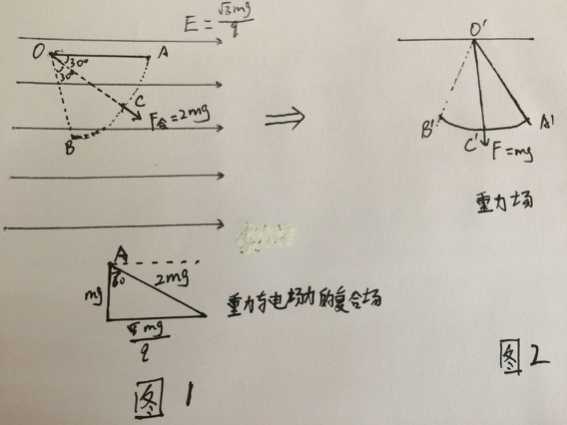 E = √3mg/q
O
A
30°
30°
C
F合=2mg
B
⇒
O'
B'
A'
C'
F=mg
重力场
A
60
mg
2mg
√3mg/q
重力与电场力的复合场
图1
图2